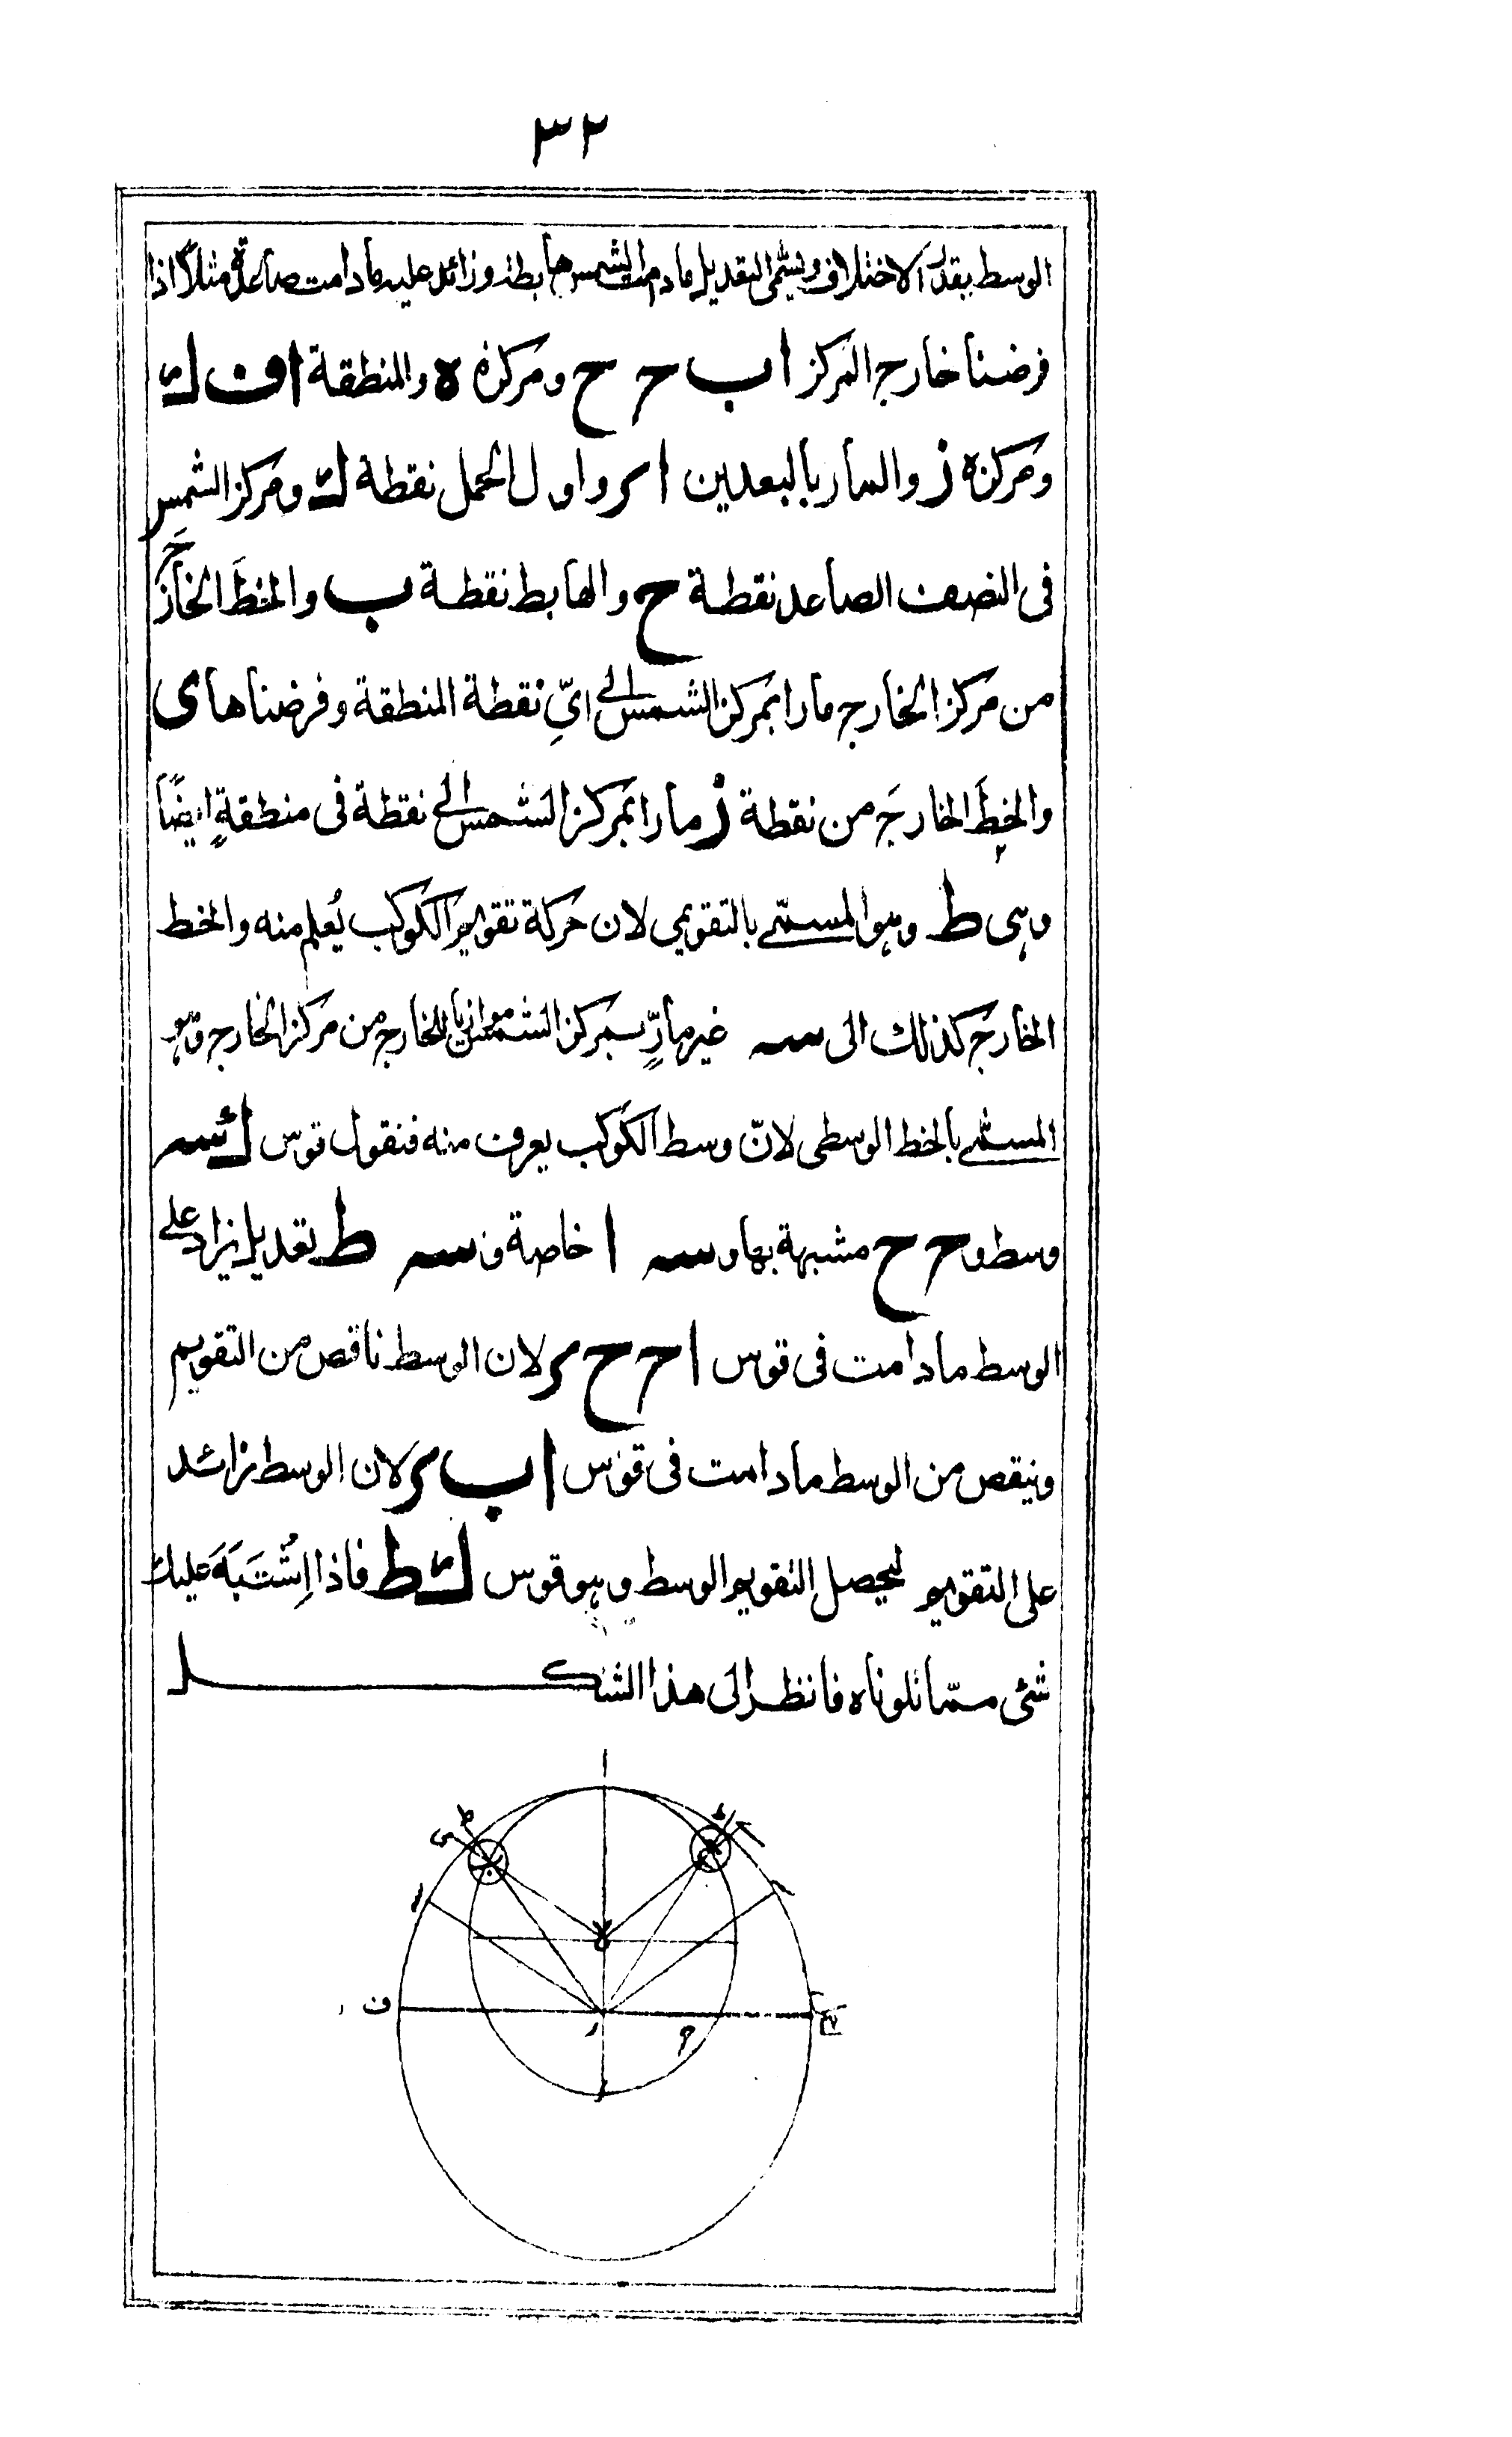 ٣٢
الوسط بقدر الاختلاف ويسمى التعديل مادامت الشمس هابطة وزائد عليه مادامت صاعدة مثلاً اذا
فرضنا خارج المركز ا ب ح ح ومركزه ه والمنطقة ا ف ك
ومركزه ز والمار بالبعدين ا ر واول الحمل نقطة ك ومركز الشمس
فى النصف الصاعد نقطة ح والهابط نقطة ب والخطَ الخارجَ
من مركز الخارج مارا بمركز الشمس الى ايِّ نقطة المنطقة وفرضناها ى
والخطَ الخارجَ من نقطة ز مارا بمركز الشمس الى نقطة فى منطقةٍ ايضًا
وهى ط وهو المسمّٰے بالتقويمى لان حركة تقويم الكوكب يُعلم منه والخط
الخارج كذلك الى سه غير مارٍّ بمركز الشمس موازيا للخارج من مركز الخارج وهو
المسمّٰے بالخط الوسطى لانّ وسط الكوكب يعرف منه فنقول قوس ك سه
وسط و ح ح مشبهة بها و سه ا خاصة و سه ط تعديل يزاد على
الوسط مادامت فى قوس ا ح ح ر لان الوسط ناقص من التقويم
وينقص من الوسط مادامت فى قوس ا ب ر لان الوسط زائد
على التقويم ليحصل التقويم الوسط وهو قوس ك ط فاذا اِشْتَبَهَ عليك
شئ ممّا تلوناه فانظر الى هذا الشكل
ا
ط
ى
ط
ب
ح
ه
ف
ز
ر